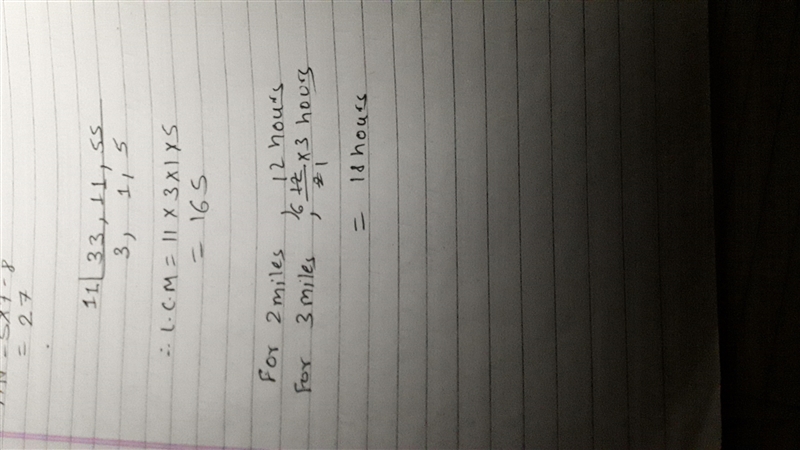 = 5×7-8
= 27
11 | 33, 11, 55
3, 1, 5
∴ L.C.M = 11 × 3 × 1 × 5
= 165
For 2 miles , 12 hours
For 3 miles , 6 12/2 1 × 3 hours
= 18 hours